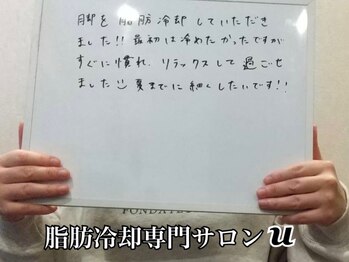 脚を脂肪冷却していただき
ました!! 最初は冷めたかったですが
すぐに慣れ、リラックスして過ごせ
ました 夏までに細くしたいです!!
脂肪冷却専門サロンu